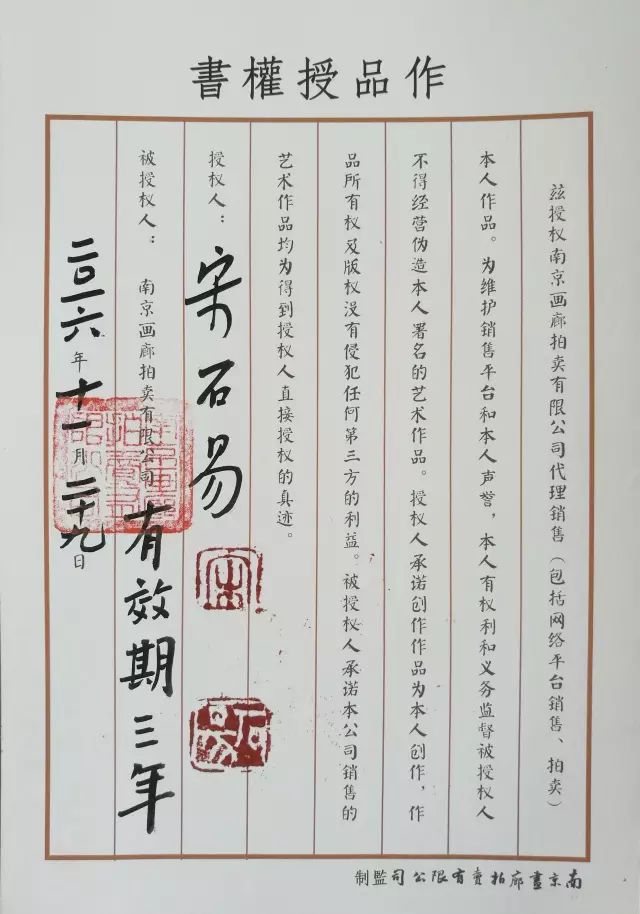 作品授權書
兹授权南京画廊拍卖有限公司代理销售（包括网络平台销售、拍卖）
本人作品。为维护销售平台和本人声誉，本人有权利和义务监督被授权人
不得经营伪造本人署名的艺术作品。授权人承诺创作作品为本人创作，作
品所有权及版权没有侵犯任何第三方的利益。被授权人承诺本公司销售的
艺术作品均为得到授权人直接授权的真迹。
授权人：宋石易
宋
石易
被授权人：南京画廊拍卖有限公司
有效期三年
二〇一六年十一月二十九日
南京畫廊拍賣有限公司監制